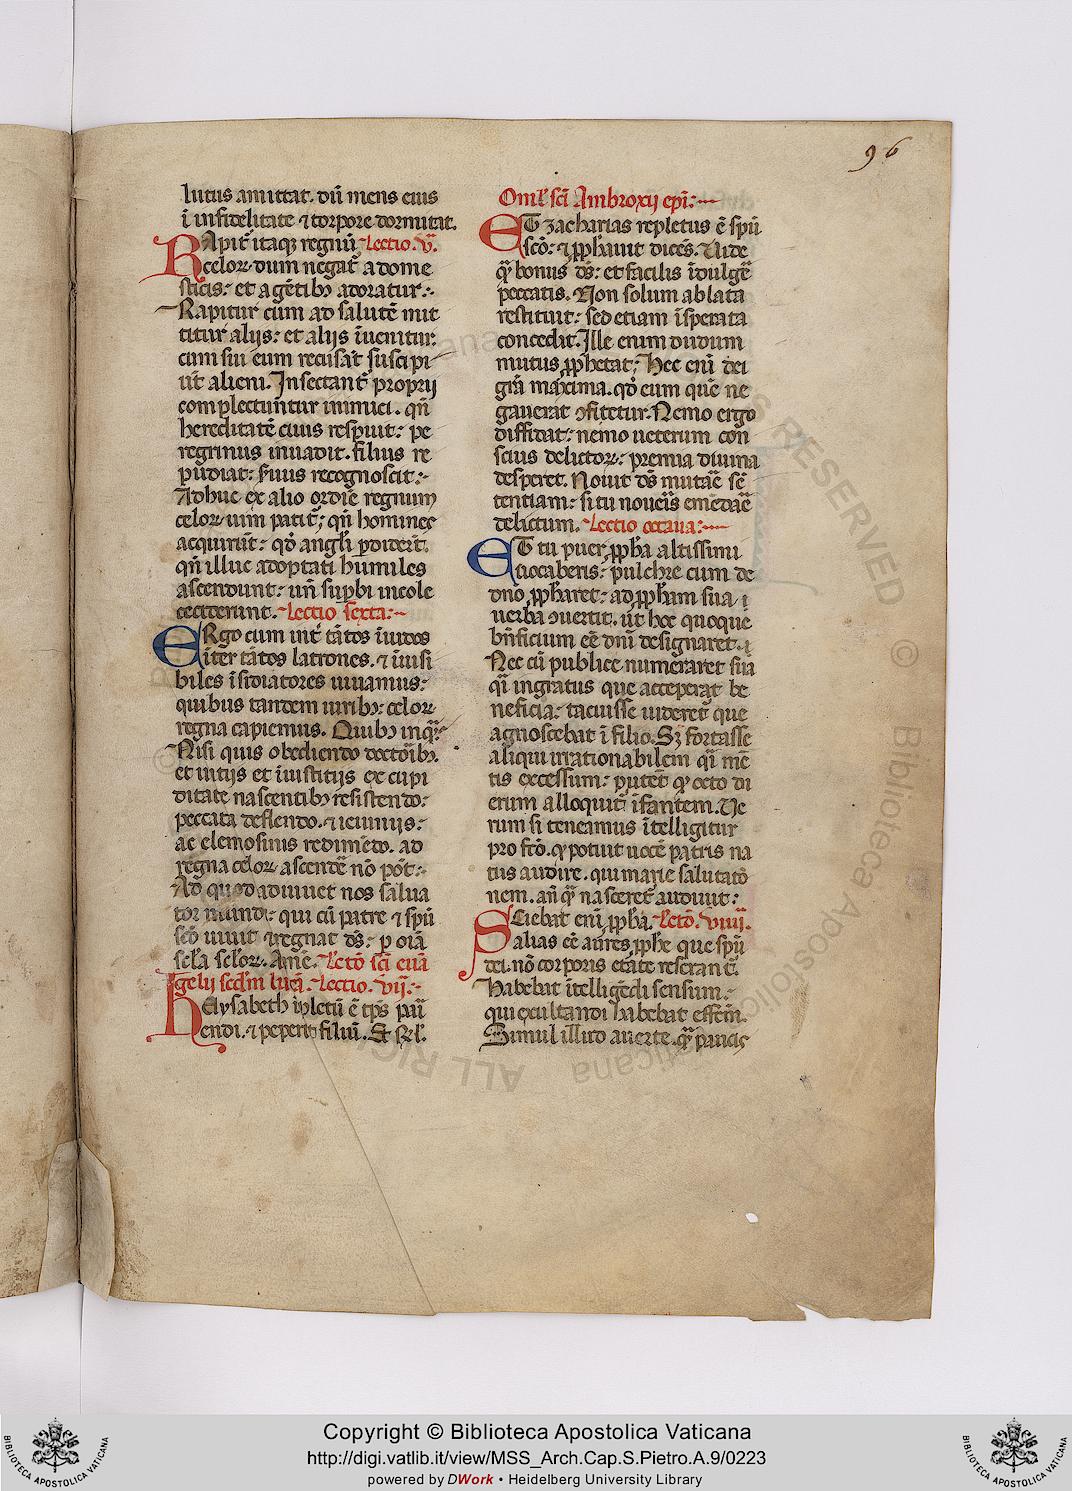 96
lutus amittat. dũ mens eius
ĩ infidelitate ⁊ torpore dormitat.
Rapit̃ itaqꝫ regnũ Lectio. v̄.
celoꝝ. dum negat̃ a dome
sticis: et a gẽtibꝰ adoratur:
Rapitur cum ad salutẽ mit
titur alijs: et alijs ĩuenitur:
cum sui eum recusãt suscipi
ũt alieni. Insectant̃ proprij
complectuntur inimici. qñ
hereditatẽ ciuis respuit: pe
regrinus inuadit. filius re
pudiat: seruus recognoscit:
Adhuc ex alio ordĩe regnum
celoꝝ uim patit̃; qñ homines
acquirũt: qd̃ angl̃i ꝑdiderũt.
qñ illuc adoptati humiles
ascendunt: uñ suꝑbi incole
ceciderunt. Lectio sexta:
Ergo cum int̃ tãtos ĩuidos
⁊ iñter tãtos latrones. ⁊ ĩuisi
biles ĩsidiatores uiuamus:
quibus tandem uiribꝰ: celoꝝ
regna capiemus. Quibꝰ inqᷓ.
Nisi quis obediendo doctoĩbꝰ.
et uitijs et ĩiustitijs ex cupi
ditate nascentibꝰ resistendo:
peccata deflendo. ⁊ ieiunijs:
ac elemosinis redimẽdo. ad
regna celoꝝ ascendẽ nõ põt:
Ad quod adiuuet nos salua
tor mundi: qui cũ patre ⁊ spũ
scõ uiuit ⁊ regnat ds̃: ꝑ oĩa
sc̃la sc̃loꝝ. Amẽ. Lectõ sc̃i euã
gelij scd̃m lucã. Lectio. vij.
helysabeth ĩpletũ ẽ tp̃s pari
endi. ⁊ peperit filiũ. Et rel̃.
Omel̃ sc̃i Ambroxij ep̃i:
ET zacharias repletus ẽ spũ
scõ: ⁊ ꝓphauit dicẽs. Uide
qᷓ bonus ds̃: et facilis ĩdulgẽ
peccatis. Non solum ablata
restituit: sed etiam ĩsperata
concedit. Ille enim dudum
mutus ꝓphetat; Hec enĩ dei
grã maxima. qd̃ eum quẽ ne
gauerat ꝯfitetur. Nemo ergo
diffidat: nemo ueterum con
scius delictoꝝ: premia diuina
desperet. Nouit ds̃ mutaẽ sẽ
tentiam: si tu noueĩs emẽdaẽ
delictum. Lectio octaua:
ET tu puer ꝓpha altissimi
uocaberis: pulchre cum de
dnõ ꝓpharet: ad ꝓpham sua
uerba ꝯuertit. ut hoc quoque
bñficium eẽ dnĩ designaret.
Nec cũ publice numeraret sua
qᷓi ingratus que acceperat be
neficia: tacuisse uideret̃ que
agnoscebat ĩ filio. Sꝫ fortasse
aliqui irrationabilem qᷓi mẽ
tis excessum: putẽt qꝫ octo di
erum alloquit̃ ĩfantem. Ue
rum si teneamus ĩtelligitur
pro fc̃o. qꝫ potuit uocẽ patris na
tus audire. qui marie salutatõ
nem. añ qᷓ nasceret̃ audiuit:
Sciebat enĩ ꝓpha. Lectõ. viiij.
alias eẽ aures ꝓphe que spũ
dei. nõ corporis etate reserant̃.
Habebat ĩtelligẽdi sensum:
qui exultandi habebat effem̃.
Simul illud auerte. qᷓ paucis
Copyright © Biblioteca Apostolica Vaticana
http://digi.vatlib.it/view/MSS_Arch.Cap.S.Pietro.A.9/0223
powered by DWork • Heidelberg University Library